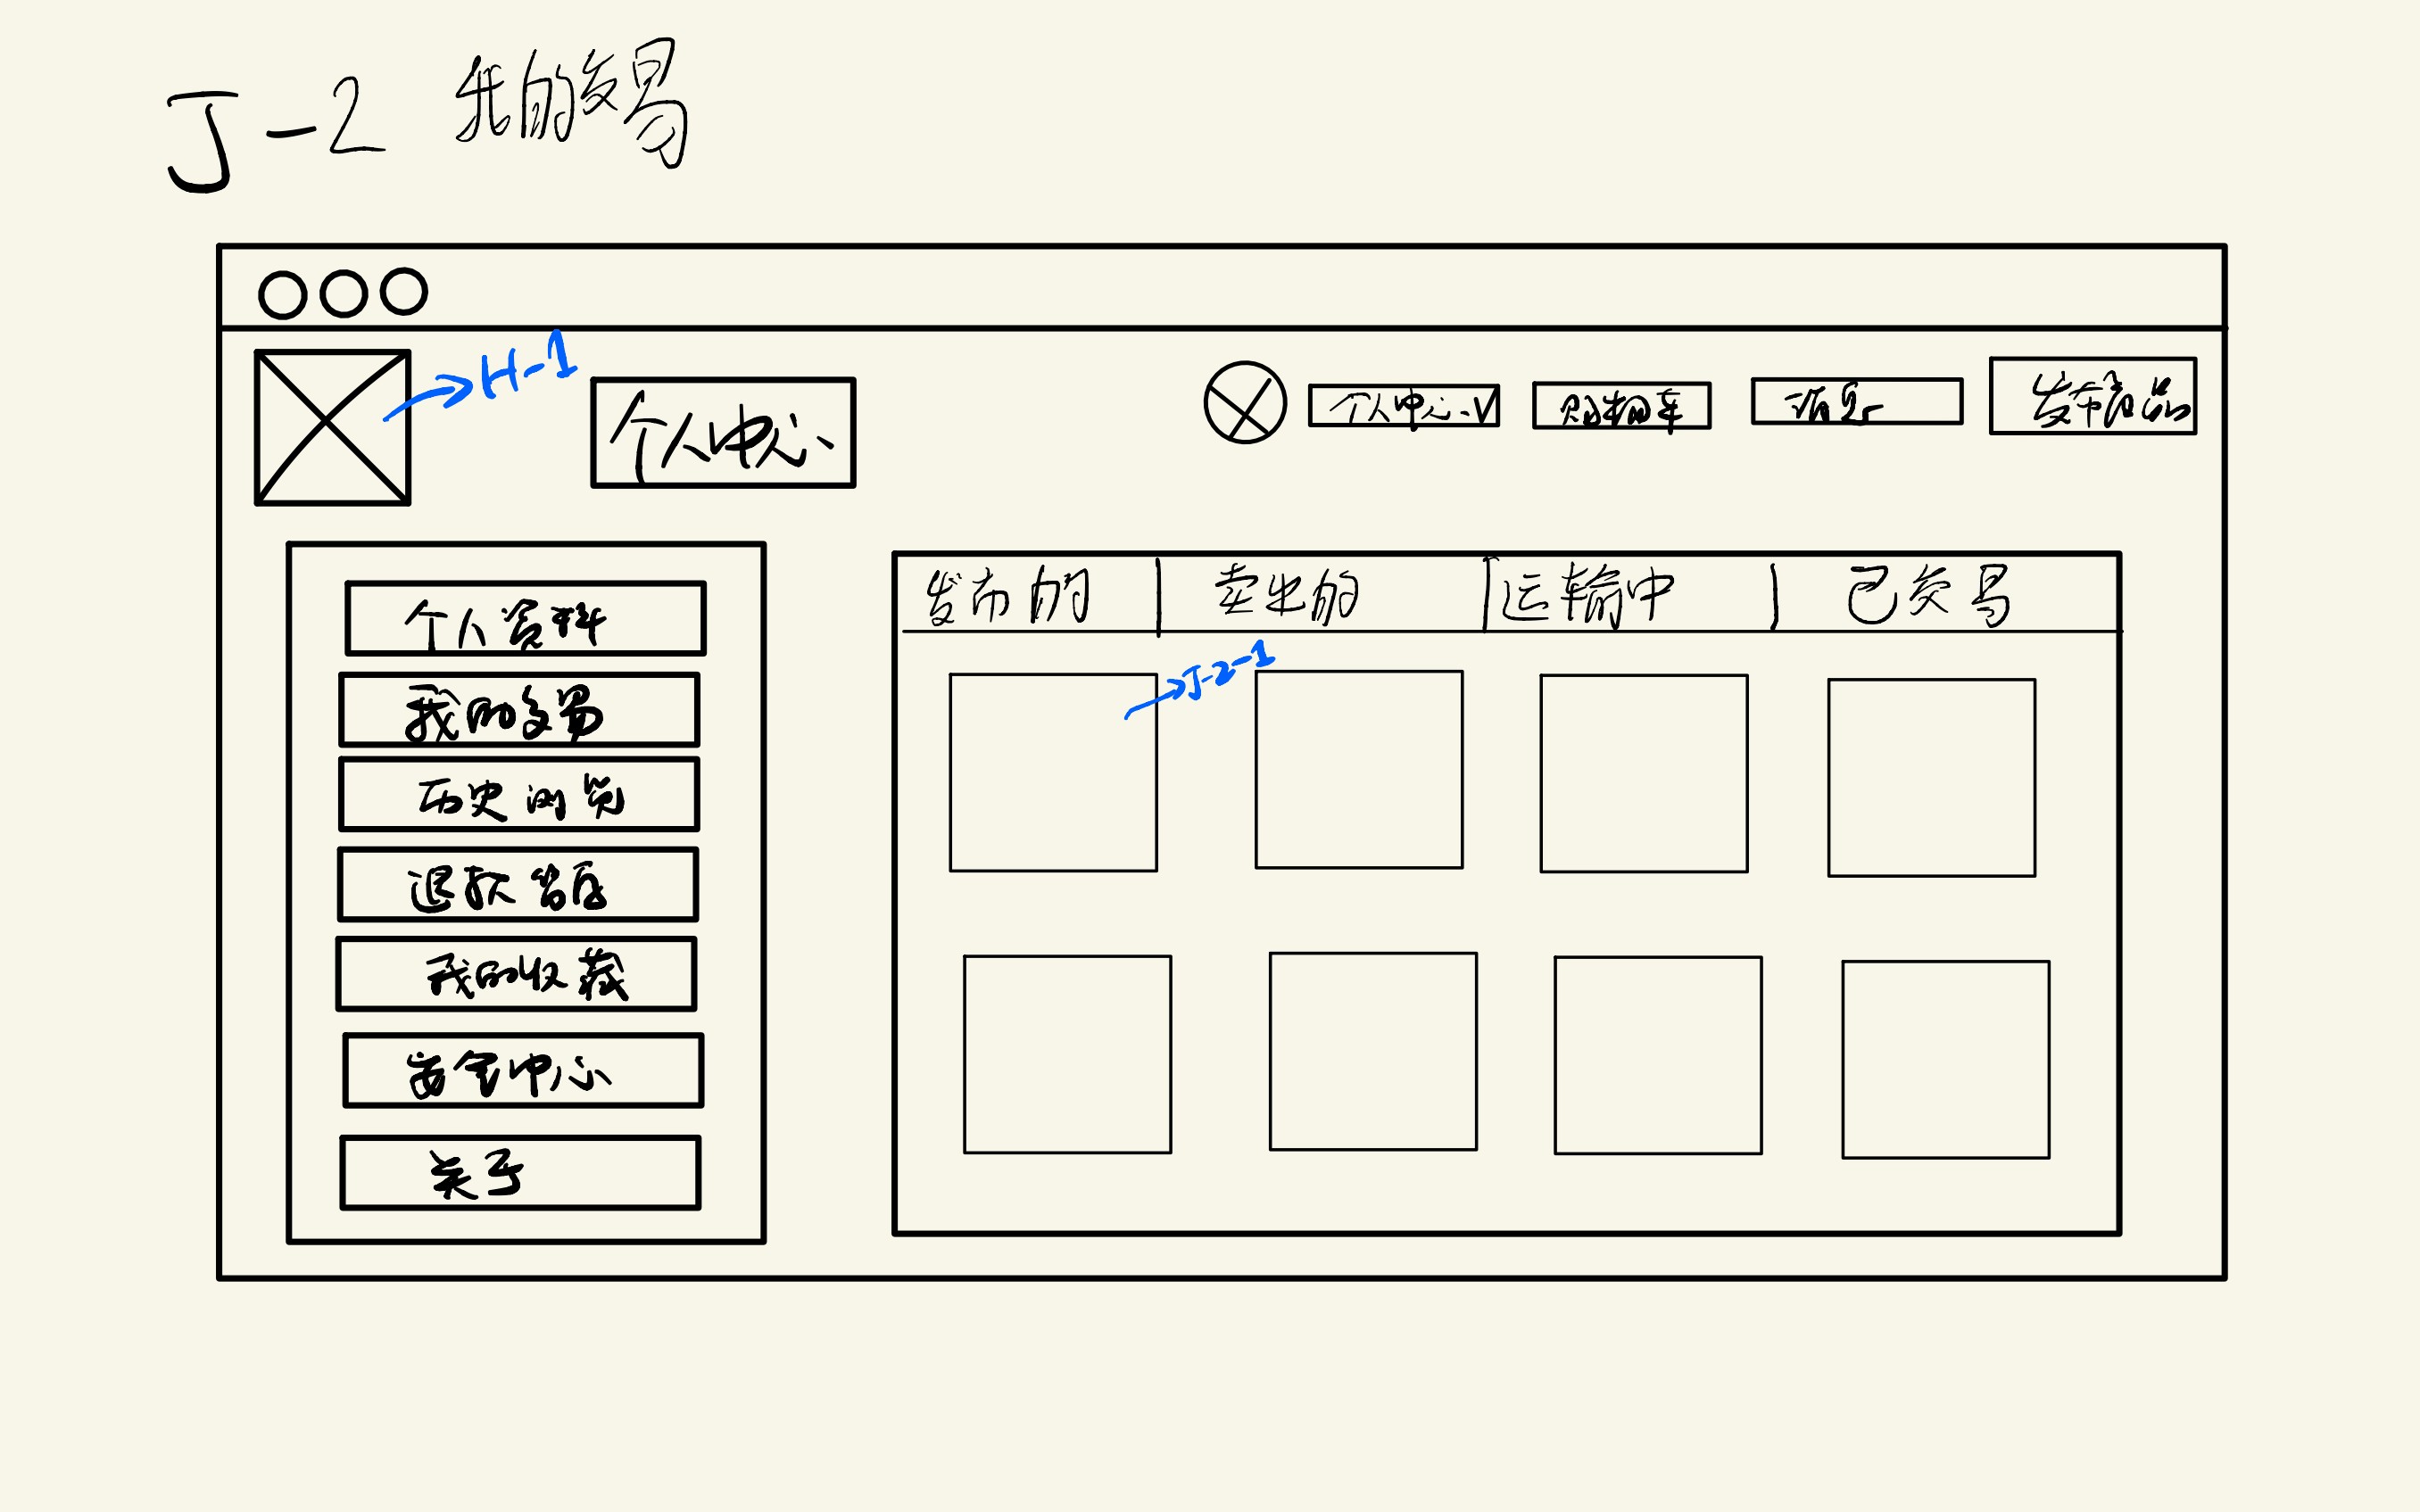 J-2 我的交易
H-1
个人中心
个人中心
购物车
消息
发布商品
个人资料
我的交易
历史浏览
退款售后
我的收藏
安全中心
关于
发布的
卖出的
运输中
已交易
J-2-1